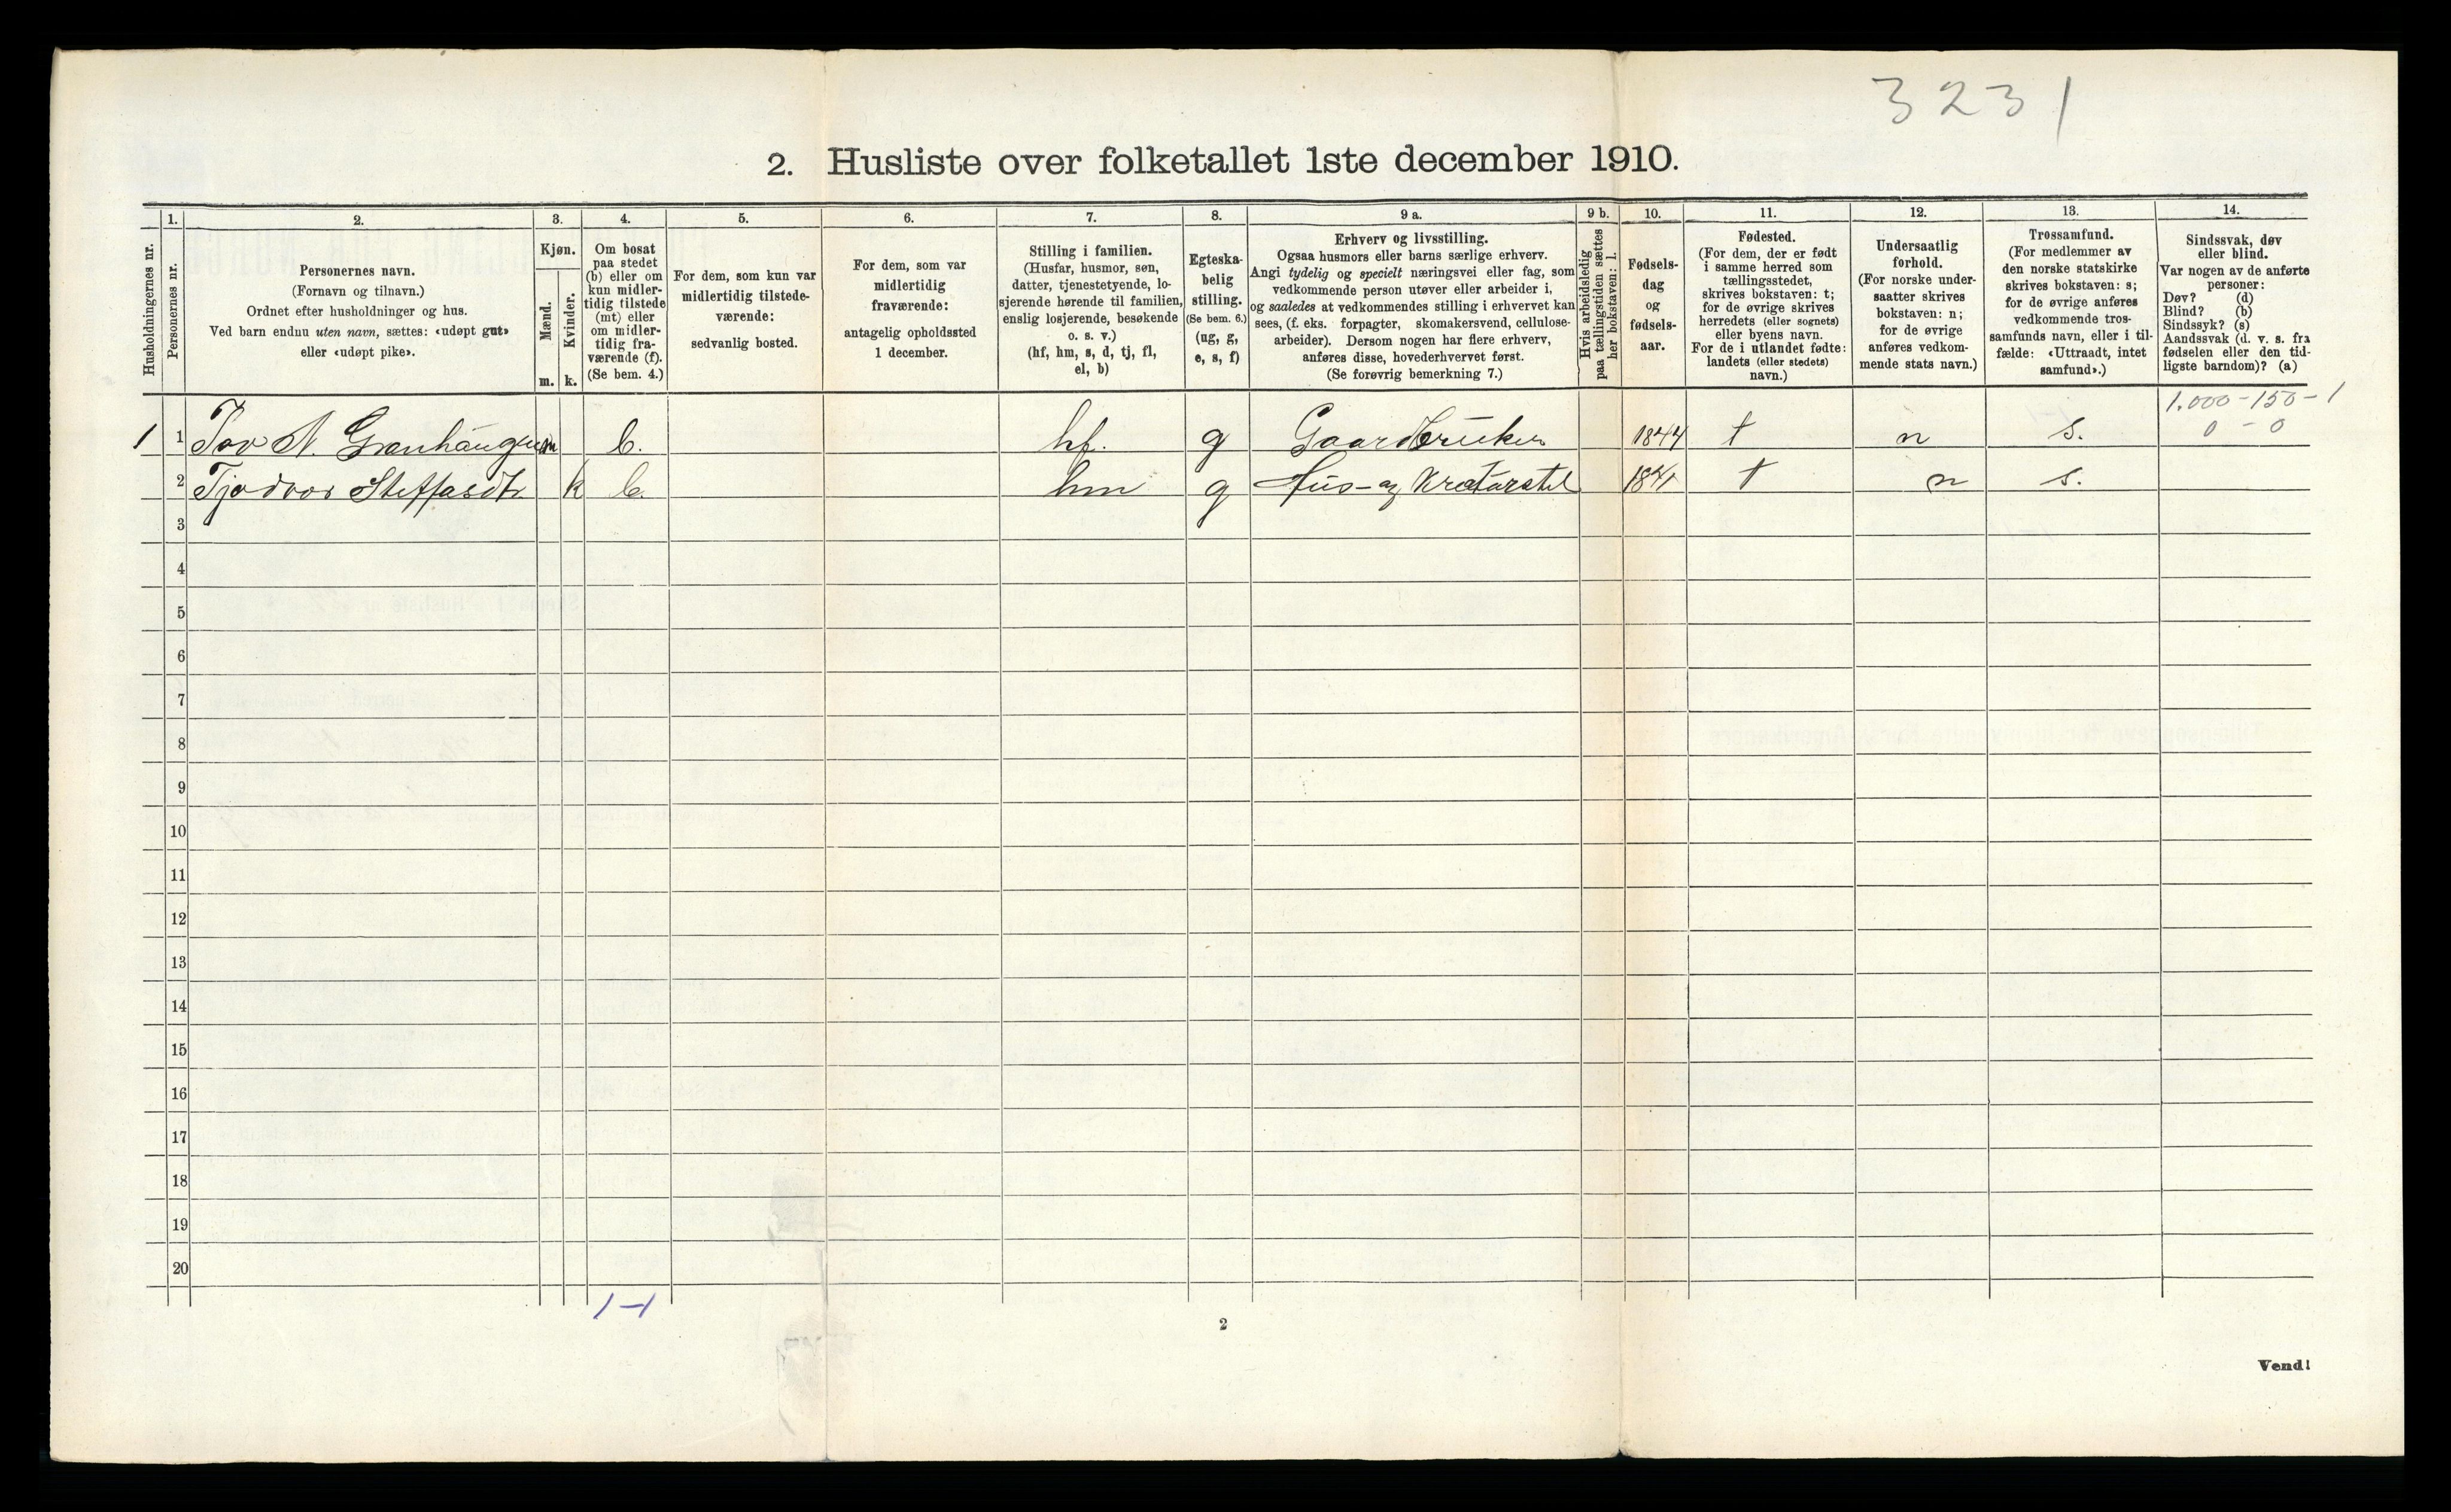 3231
2. Husliste over folketallet 1ste december 1910.
Husholdningernes nr.
1.
Personernes nr.
2.
Personernes navn.
(Fornavn og tilnavn.)
Ordnet efter husholdninger og hus.
Ved barn endnu uten navn, sættes: «udøpt gut»
eller «udøpt pike».
3.
Kjøn.
Mænd.
m.
Kvinder.
k.
4.
Om bosat
paa stedet
(b) eller om
kun midler-
tidig tilstede
(mt) eller
om midler-
tidig fra-
værende (f).
(Se bem. 4.)
5.
For dem, som kun var
midlertidig tilstede-
værende:
sedvanlig bosted.
6.
For dem, som var
midlertidig
fraværende:
antagelig opholdssted
1 december.
7.
Stilling i familien.
(Husfar, husmor, søn,
datter, tjenestetyende, lo-
sjerende hørende til familien,
enslig losjerende, besøkende
o. s. v.)
(hf, hm, s, d, tj, fl,
el, b)
8.
Egteska-
belig
stilling.
(Se bem. 6.)
(ug, g,
e, s, f)
9 a.
Erhverv og livsstilling.
Ogsaa husmors eller barns særlige erhverv.
Angi tydelig og specielt næringsvei eller fag, som
vedkommende person utøver eller arbeider i,
og saaledes at vedkommendes stilling i erhvervet kan
sees, (f. eks. forpagter, skomakersvend, cellulose-
arbeider). Dersom nogen har flere erhverv,
anføres disse, hovederhvervet først.
(Se forøvrig bemerkning 7.)
9 b.
Hvis arbeidsledig
paa tællingstiden sættes
her bokstaven: l.
10.
Fødsels-
dag
og
fødsels-
aar.
11.
Fødested.
(For dem, der er født
i samme herred som
tællingsstedet,
skrives bokstaven: t;
for de øvrige skrives
herredets (eller sognets)
eller byens navn.
For de i utlandet fødte:
landets (eller stedets)
navn.)
12.
Undersaatlig
forhold.
(For norske under-
saatter skrives
bokstaven: n;
for de øvrige
anføres vedkom-
mende stats navn.)
13.
Trossamfund.
(For medlemmer av
den norske statskirke
skrives bokstaven: s;
for de øvrige anføres
vedkommende tros-
samfunds navn, eller i til-
fælde: «Uttraadt, intet
samfund».)
14.
Sindssvak, døv
eller blind.
Var nogen av de anførte
personer:
Døv? (d)
Blind? (b)
Sindssyk? (s)
Aandssvak (d. v. s. fra
fødselen eller den tid-
ligste barndom)? (a)
1.000-150-1
1 1 Tov N. Granhaugen m b. hf. g Gaardbruker 1844 t n s. 0 - 0
2 Tjodvor Steffasdtr k b. hm g Hus- og Kreaturstel 1841 t n s.
3
4
5
6
7
8
9
10
11
12
13
14
15
16
17
18
19
20
1-1
2
Vend!